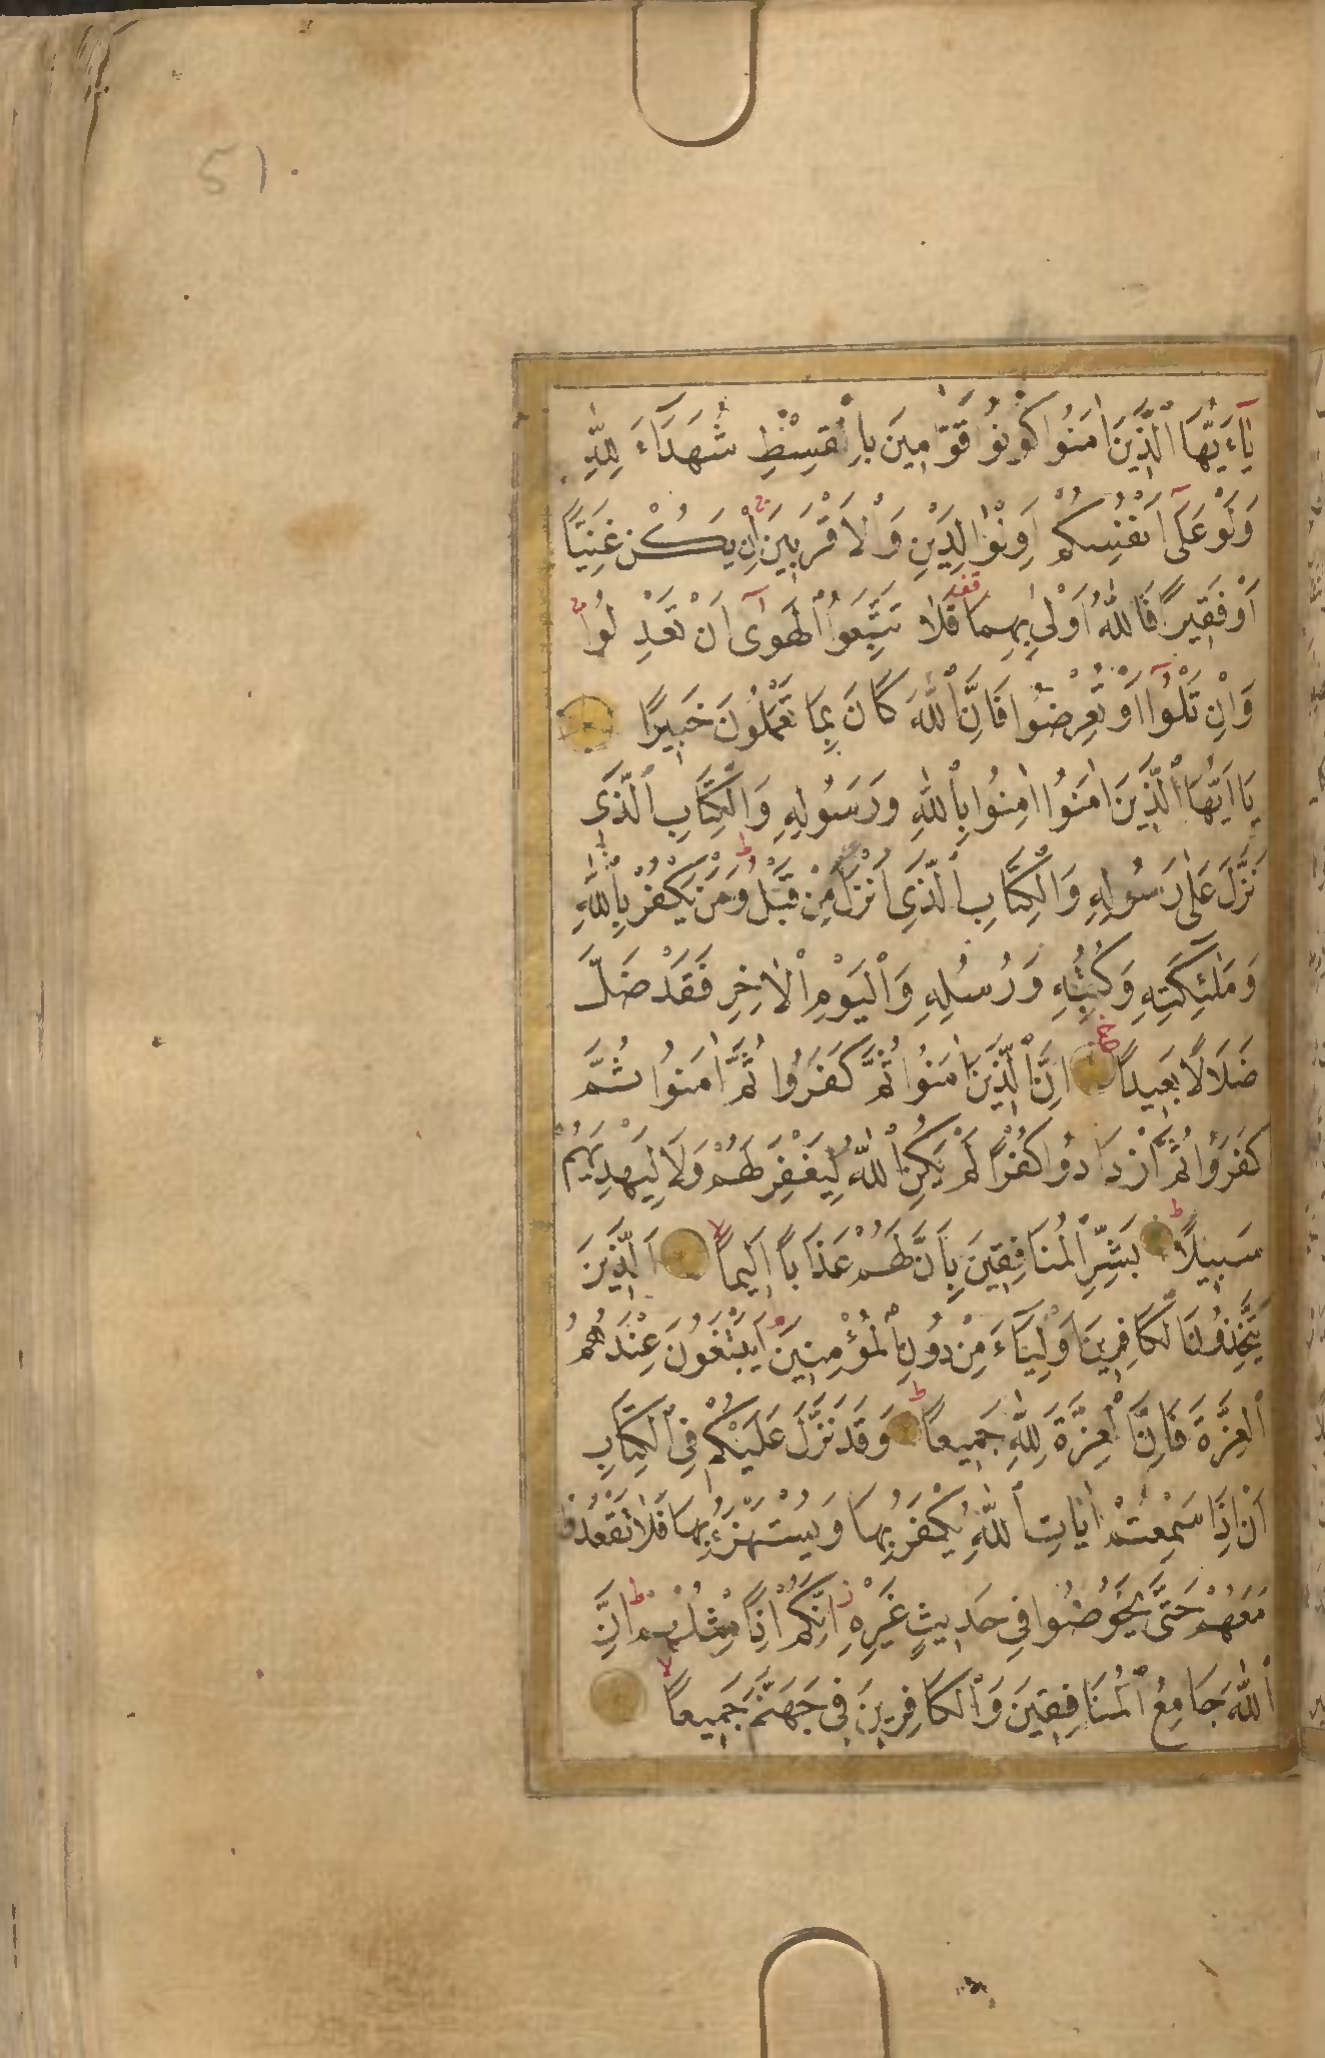 51.
يَآءَيُّهَا ٱلَّذِينَ اٰمَنُوا كُونُوا قَوَّامِينَ بِالْقِسْطِ شُهَدَآءَ لِلّٰهِ
وَلَوْ عَلَىٓ اَنْفُسِكُمْ اَوِ الْوَالِدَيْنِ وَالْاَقْرَبِينَ ۚ اِنْ يَكُنْ غَنِيًّا
اَوْ فَقِيرًا فَاللّٰهُ اَوْلٰى بِهِمَا فَلَا تَتَّبِعُوا الْهَوٰىٓ اَنْ تَعْدِلُوا ۚ
وَاِنْ تَلْوُٓا اَوْ تُعْرِضُوا فَاِنَّ ٱللّٰهَ كَانَ بِمَا تَعْمَلُونَ خَبِيرًا
يَا اَيُّهَا ٱلَّذِينَ اٰمَنُوا اٰمِنُوا بِٱللّٰهِ وَرَسُولِهِ وَالْكِتَابِ ٱلَّذِى
نَزَّلَ عَلٰى رَسُولِهِ وَالْكِتَابِ ٱلَّذِى اَنْزَلَ مِنْ قَبْلُ ط وَمَنْ يَكْفُرْ بِٱللّٰهِ
وَمَلٰٓئِكَتِهِ وَكُتُبِهِ وَرُسُلِهِ وَٱلْيَوْمِ ٱلْاٰخِرِ فَقَدْ ضَلَّ
ضَلَالًا بَعِيدًا اِنَّ ٱلَّذِينَ اٰمَنُوا ثُمَّ كَفَرُوا ثُمَّ اٰمَنُوا ثُمَّ
كَفَرُوا ثُمَّ ازْدَادُوا كُفْرًا لَمْ يَكُنِ ٱللّٰهُ لِيَغْفِرَ لَهُمْ وَلَا لِيَهْدِيَهُمْ
سَبِيلًا ط بَشِّرِ ٱلْمُنَافِقِينَ بِاَنَّ لَهُمْ عَذَابًا اَلِيمًا لا اَلَّذِينَ
يَتَّخِذُونَ الْكَافِرِينَ اَوْلِيَآءَ مِنْ دُونِ ٱلْمُؤْمِنِينَ اَيَبْتَغُونَ عِنْدَهُمُ
ٱلْعِزَّةَ فَاِنَّ ٱلْعِزَّةَ لِلّٰهِ جَمِيعًا ط وَقَدْ نَزَّلَ عَلَيْكُمْ فِى ٱلْكِتَابِ
اَنْ اِذَا سَمِعْتُمْ اٰيَاتِ ٱللّٰهِ يُكْفَرُ بِهَا وَيُسْتَهْزَءُ بِهَا فَلَا تَقْعُدُوا
مَعَهُمْ حَتَّى يَخُوضُوا فِى حَدِيثٍ غَيْرِهِ ز اِنَّكُمْ اِذًا مِثْلُهُمْ ط اِنَّ
ٱللّٰهَ جَامِعُ ٱلْمُنَافِقِينَ وَٱلْكَافِرِينَ فِى جَهَنَّمَ جَمِيعًا لا